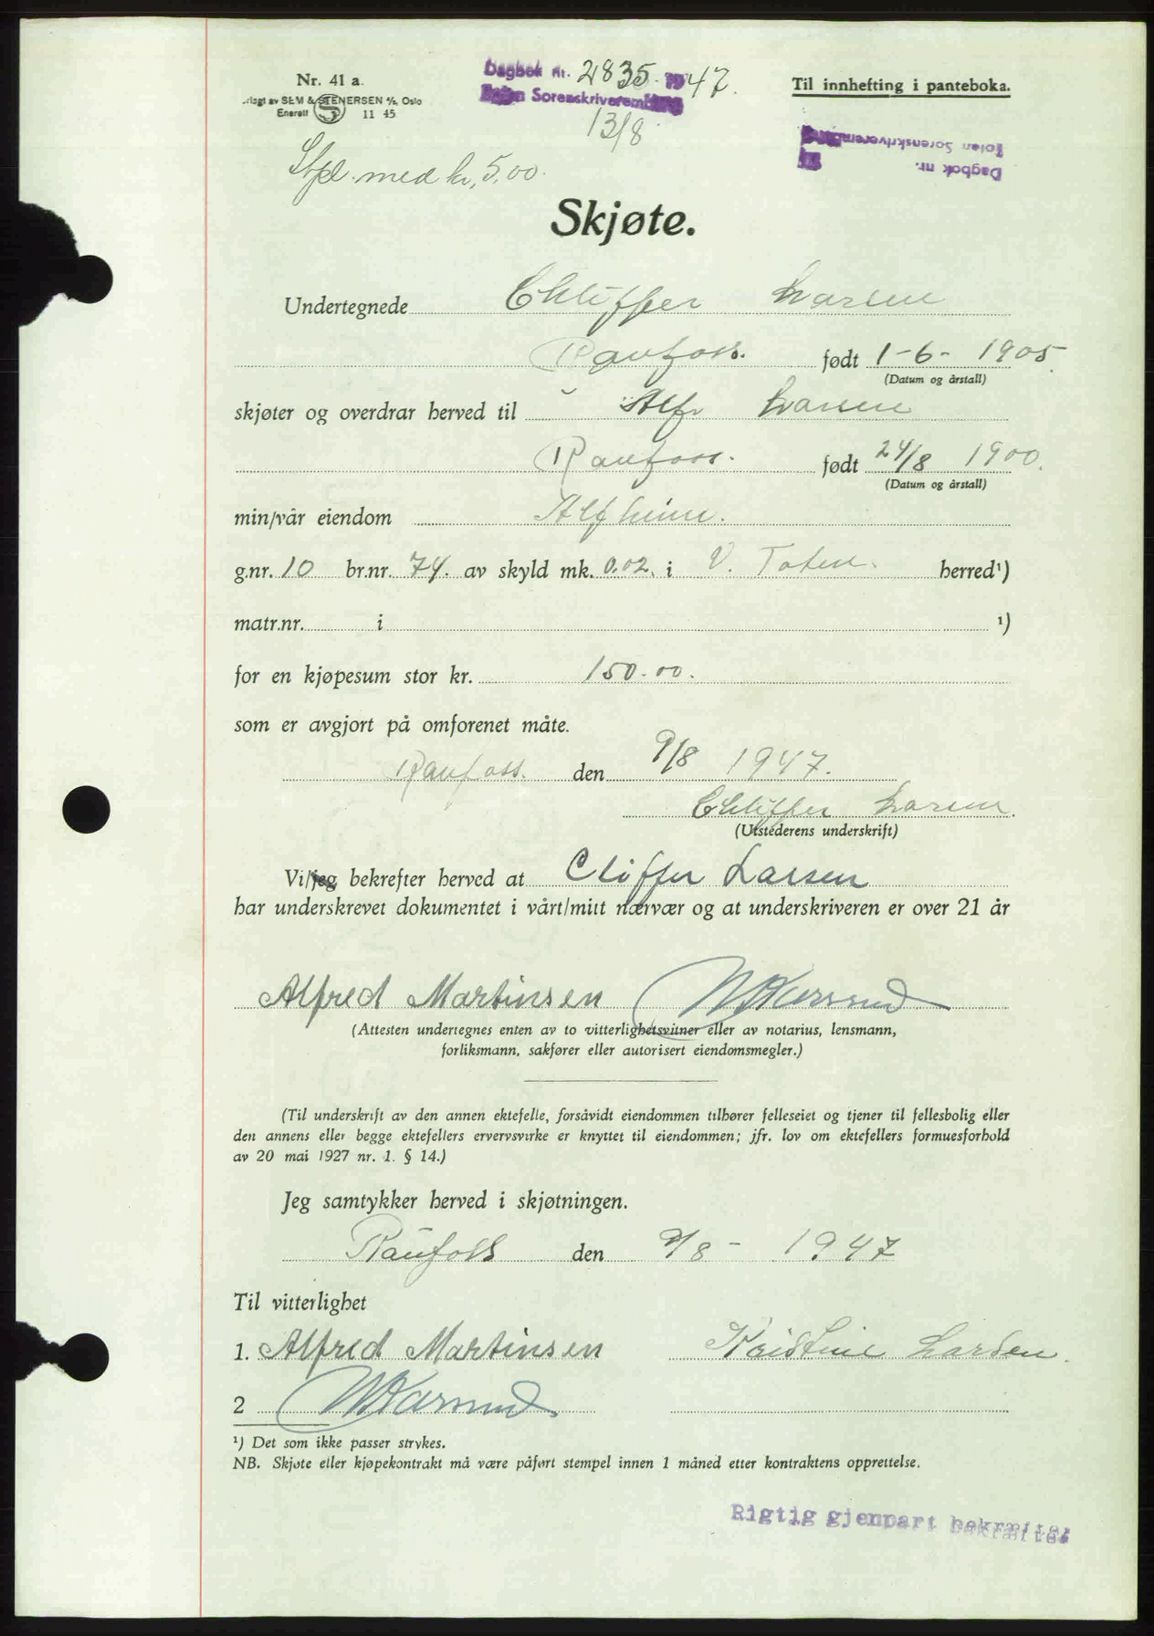 Nr. 41 a.
SEM & STENERSEN A/S, Oslo
Enerett 11 45
Dagbok nr. 2835 1947.
Toten Sorenskriverembede
13/8
Til innhefting i panteboka.
Dagbok nr.
Toten Sorenskriverembede
Stpl. med kr. 5,00.
Skjøte.
Undertegnede Chliffer Larsen
Raufoss. født 1-6-1905.
(Datum og årstall)
skjøter og overdrar herved til Alfr Larsen
Raufoss. født 24/8 1900.
(Datum og årstall)
min/vår eiendom Alfheim.
g.nr. 10 br.nr. 74. av skyld mk. 0.02. i V. Toten. herred¹)
matr.nr. i ¹)
for en kjøpesum stor kr. 150.00.
som er avgjort på omforenet måte.
Raufoss. den 9/8 1947.
Chliffer Larsen.
(Utstederens underskrift)
Vi/jeg bekrefter herved at Cliffer Larsen
har underskrevet dokumentet i vårt/mitt nærvær og at underskriveren er over 21 år
Alfred Martinsen
(Attesten undertegnes enten av to vitterlighetsvitner eller av notarius, lensmann,
forliksmann, sakfører eller autorisert eiendomsmegler.)
(Til underskrift av den annen ektefelle, forsåvidt eiendommen tilhører felleseiet og tjener til fellesbolig eller
den annens eller begge ektefellers ervervsvirke er knyttet til eiendommen; jfr. lov om ektefellers formuesforhold
av 20 mai 1927 nr. 1. § 14.)
Jeg samtykker herved i skjøtningen.
Raufoss den 9/8 - 1947
Til vitterlighet
1. Alfred Martinsen Kristine Larsen.
2
¹) Det som ikke passer strykes.
NB. Skjøte eller kjøpekontrakt må være påført stempel innen 1 måned etter kontraktens opprettelse.
Rigtig gjenpart bekræftes